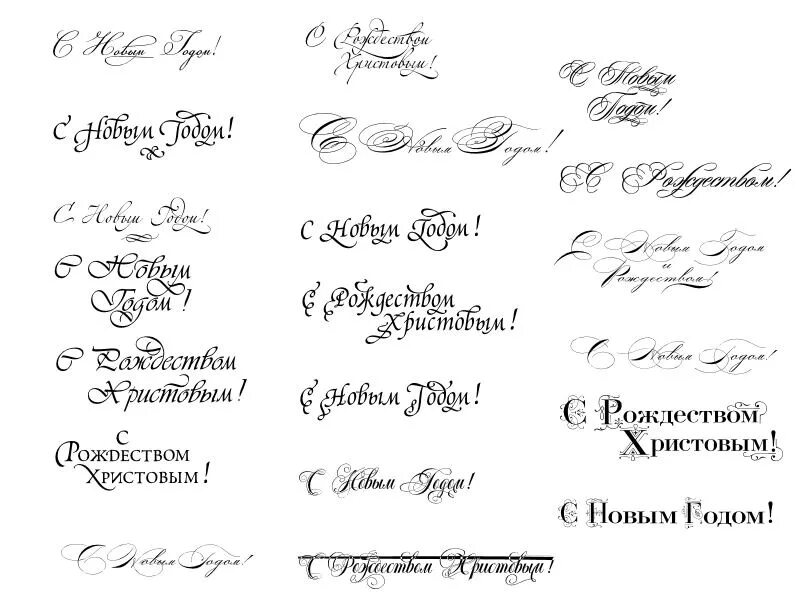 С Новым Годом!
С Новым Годом!
С Новым Годом!
С Новым
Годом!
С Рождеством
Христовым!
С
Рождеством
Христовым!
С Новым Годом!
С Рождеством
Христовым!
С Новым Годом!
С Новым Годом!
С Рождеством
Христовым!
С Новым Годом!
С Новым Годом!
С Рождеством Христовым!
С Новым
Годом!
С Рождеством!
С Новым Годом
и
Рождеством!
С Новым Годом!
С Рождеством
Христовым!
С Новым Годом!